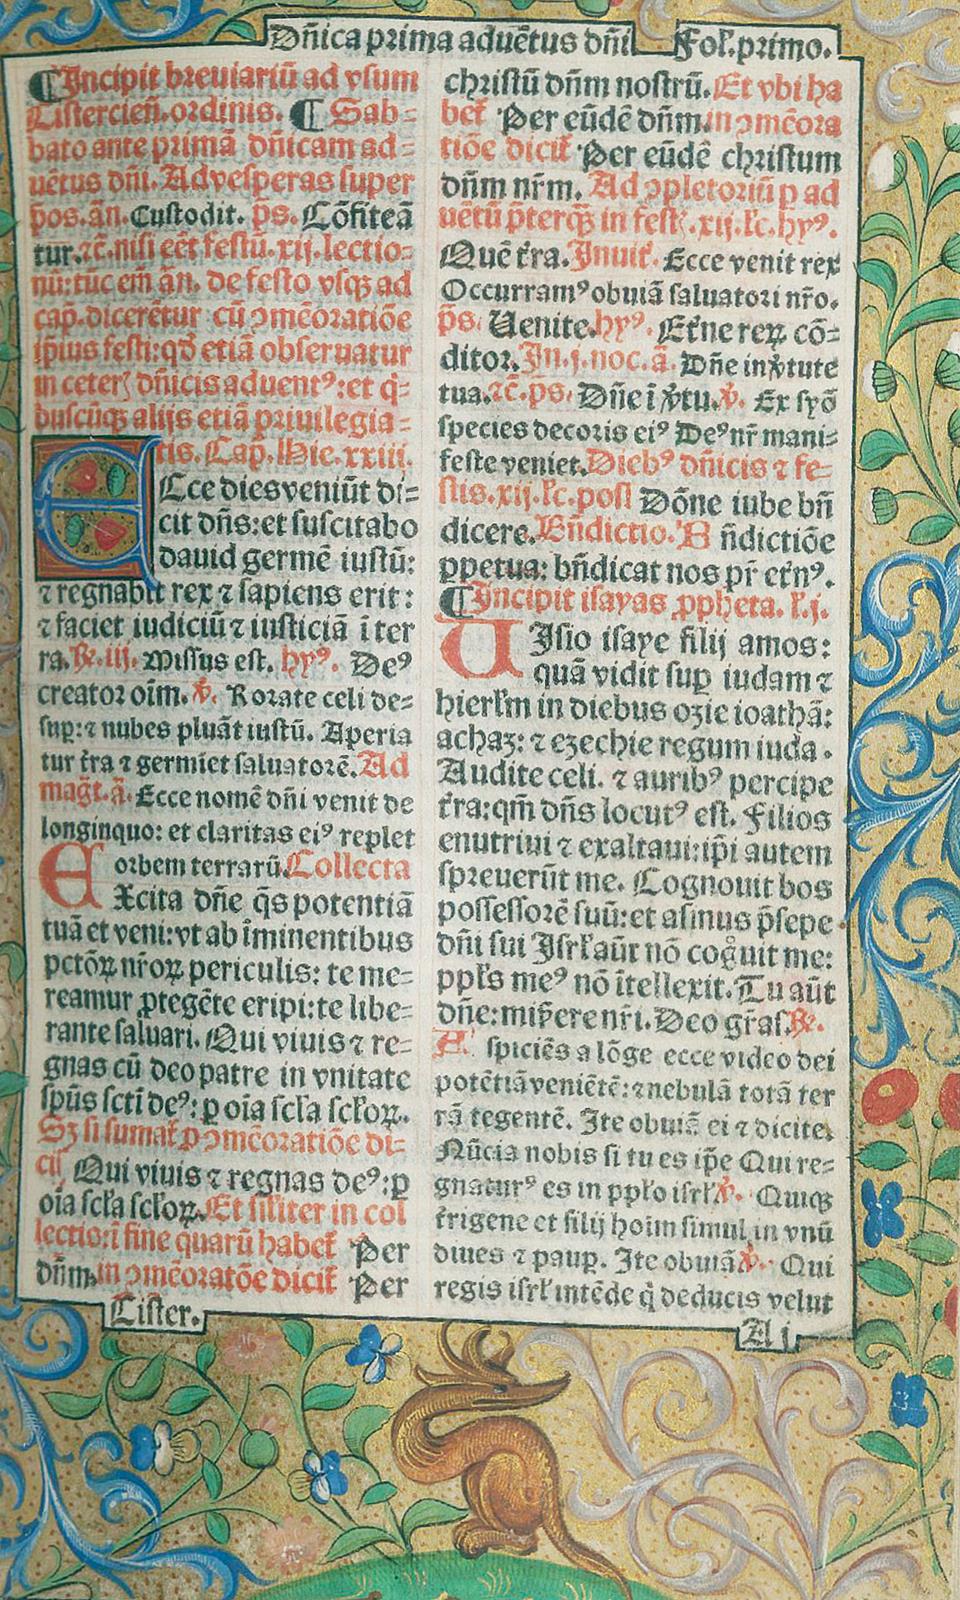 Dñica prima aduẽtus dñi
Fol'.primo.
¶Incipit breuiariũ ad vsum
Cistercieñ.ordinis. ¶ Sab=
bato ante primã dñicam ad=
uẽtus dñi. Ad vesperas super
p̄os.añ. Custodit. p̄s. Cõfiteã
tur.⁊c̄.nisi eēt festũ.xij.lectio=
nũ:tũc em̄ añ. de festo vsq̢ ad
cap̄.dicerẽtur cũ ꝯmẽoratiõe
ip̄ius festi:qd̄ etiã obseruatur
in ceterꝭ dñicis aduentꝰ:et q̄=
buscũq̢ alijs etiã priuilegia=
tis. Cap̄. Hie.xxiii.
ECce dies veniũt di=
cit dñs:et suscitabo
dauid germẽ iustũ:
⁊ regnabit rex ⁊ sapiens erit:
⁊ faciet iudiciũ ⁊ iusticiã ĩ ter
ra.℟.iij. Missus est. hyꝰ. Deꝰ
creator oĩm. ℣. Rorate celi de=
sup̱:⁊ nubes pluãt iustũ. Aperia
tur t̄ra ⁊ germiet saluatorẽ. Ad
magt̄.ã. Ecce nomẽ dñi venit de
longinquo: et claritas eiꝰ replet
orbem terrarũ. Collecta
EXcita dñe q̄s potentiã
tuã et veni:vt ab ĩminentibus
pctõꝝ nr̄oꝝ periculis: te me=
reamur ꝓtegẽte eripi:te libe=
rante saluari. Qui viuis ⁊ re=
gnas cũ deo patre in vnitate
sp̄us sc̄ti deꝰ: ꝑ oĩa scl'a scl'oꝝ.
Sꝫ si sumat̄ ꝑ ꝯmẽoratiõe di=
cit̄ Qui viuis ⁊ regnas deꝰ:ꝑ
oĩa scl'a scl'oꝝ. Et sil'iter in col
lectio:ĩ fine quarũ habet̄ Per
dñm.in ꝯmẽoratõe dicit̄ Per
christũ dñm nostrũ. Et vbi ha
bet̄ Per eũdẽ dñm.in ꝯmẽora
tiõe dicit̄ Per eũdẽ christum
dñm nr̄m. Ad ꝯpletoriũ ꝑ ad
uẽtũ p̄terq̢ in festꝭ.xij.lc̄.hyꝰ.
Quẽ t̄ra. Inuit̄. Ecce venit rex
Occurramꝰ obuiã saluatori nr̄o.
p̄s. Venite. hyꝰ. Et̄ne rex cõ=
ditor. In.j.noc.ã. Dñe in v̄tute
tua.⁊c̄.ps. Dñe ĩ v̄tu.℣. Ex syõ
species decoris eiꝰ Deꝰ nr̄ mani=
feste veniet. Diebꝰ dñicis ⁊ fe=
stis.xij.lc̄.post Dõne iube bñ
dicere. Bñdictio. Bñdictiõe
ꝑpetua: bñdicat nos pr̄ et̄nꝰ.
¶Incipit isayas ꝓpheta. l'.j.
VIsio isaye filij amos:
quã vidit sup̱ iudam ⁊
hierl'm in diebus ozie ioathã:
achaz: ⁊ ezechie regum iuda.
Audite celi. ⁊ auribꝰ percipe
t̄ra:qm̄ dñs locutꝰ est. Filios
enutriui ⁊ exaltaui:ip̄i autem
spreuerũt me. Cognouit bos
possessorẽ suũ:et asinus p̄sepe
dñi sui Isrl' aũt nõ cog̊uit me:
ppl's meꝰ nõ ĩtellexit. Tu aũt
dñe:mis̄ere nr̄i. Deo gr̄as. ℟.
Aspiciẽs a lõge ecce video dei
potẽtiã veniẽtẽ:⁊ nebulã totã ter
rã tegentẽ. Ite obuiã ei ⁊ dicite.
Nũcia nobis si tu es ip̄e Qui re=
gnaturꝰ es in ppl'o isrl'. ℣. Quiq̢
t̄rigene et filij hoĩm simul in vnũ
diues ⁊ paup̱. Ite obuiã ℣. Qui
regis isrl' intẽde q̇ deducis velut
Cister.
A j